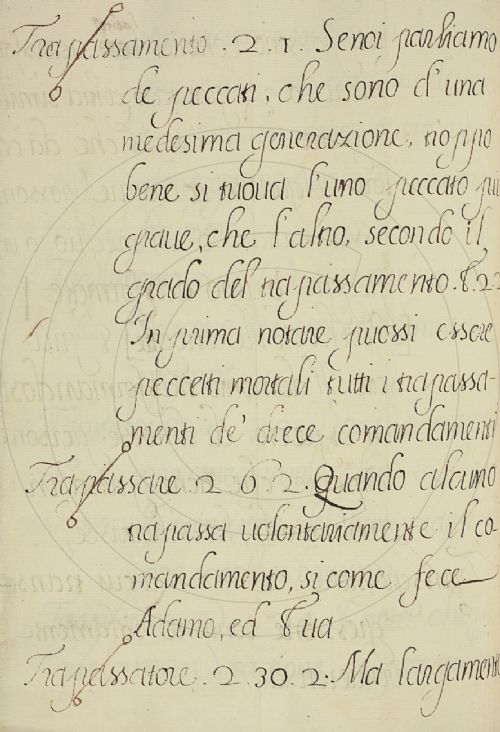 Trapassamento . 2. 1. Se noi parliamo
de peccati, che sono d'una
medesima generazione, troppo
bene si truova l'uno peccato più
grave, che l'altro, secondo il
grado del trapassamento. E. 22
In prima notare puossi essere
peccati mortali tutti i trapassa-
menti de' diece comandamenti
Trapassare . 2. 6. 2. Quando alcuno
trapassa volontariamente il co-
mandamento, si come fece
Adamo, ed Eva
Trapassatore . 2. 30. 2. Ma largamente